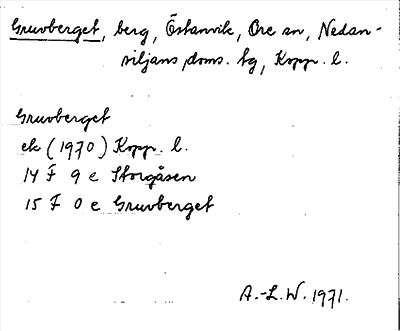 Gruvberget, berg, Östanvik, Ore sn, Nedan-
siljans doms. tg, Kopp. l.
Gruvberget
ek (1970) Kopp. l.
14 F 9 e Storgåsen
15 F 0 e Gruvberget
A.-L.W. 1971.